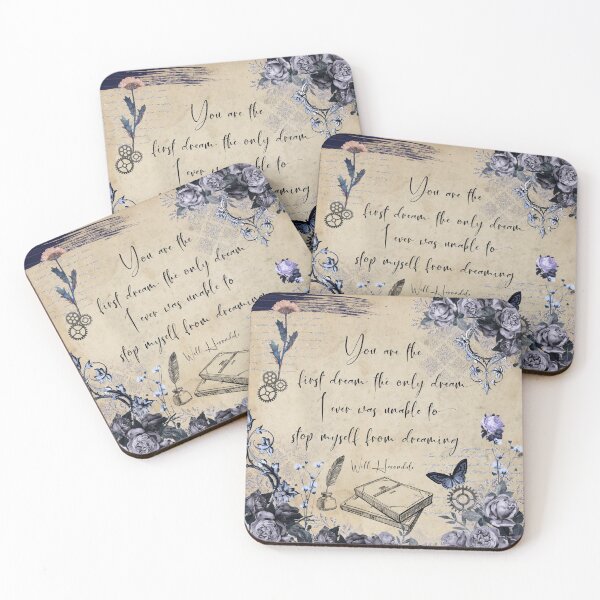 You are the
first dream, the only dream
I ever was unable to
dreaming
You are the
first dream, the only dream
I ever was unable to
stop myself from dreaming
Will Herondale
You are the
first dream, the only dream
I ever was unable to
stop myself from dreaming
Will Herondale
You are the
first dream, the only dream
I ever was unable to
stop myself from dreaming
Will Herondale